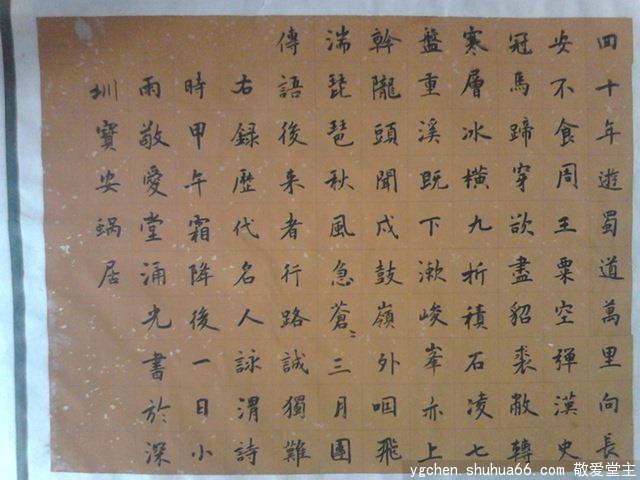 四十年遊蜀道萬里向長
安不食周王粟空彈漢史
冠馬蹄穿欲盡貂裘敝轉
寒層冰橫九折積石凌七
盤重溪既下漱峻峯亦上
幹隴頭聞戍鼓嶺外咽飛
湍琵琶秋風急蒼〻三月團
傳語後来者行路誠獨難
右録歷代名人詠渭詩
時甲午霜降後一日小
雨敬愛堂涌光書於深
圳寶安蝸居
ygchen.shuhua66.com 敬爱堂主